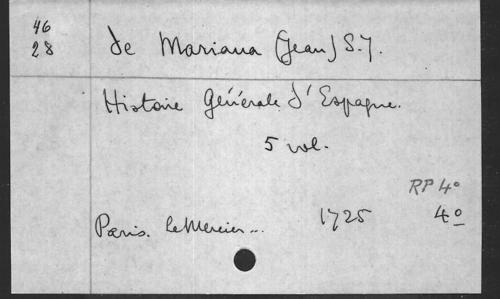 46
28
de Mariana (Jean) S.J.
Histoire Générale d'Espagne.
5 vol.
RP 4º
Paris. Le Mercier... 1725 4º